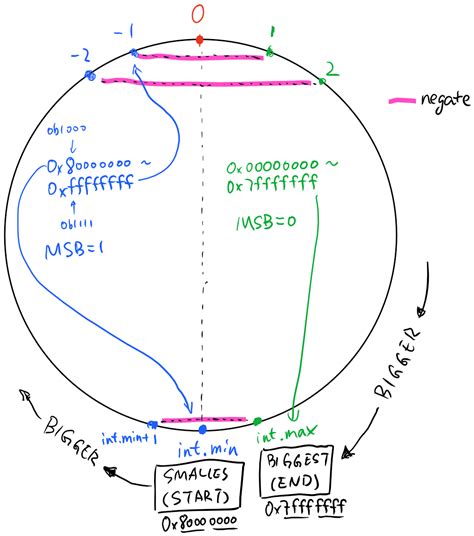 0
-1
1
-2
2
negate
0b1000
0x80000000 ~
0xffffffff
0b1111
MSB=1
0x00000000 ~
0x7fffffff
MSB=0
BIGGER
BIGGER
int.min+1
int.min
int.max
SMALLES
(START)
0x80000000
BIGGEST
(END)
0x7fffffff